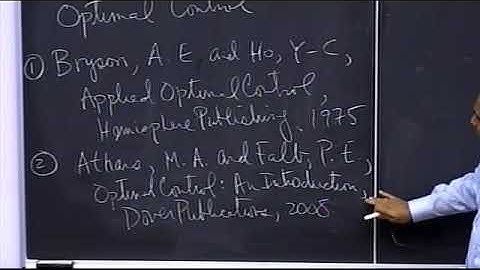 Optimal Control
① Bryson, A. E and Ho, Y-C,
Applied Optimal Control,
Hemisphere Publishing, 1975
② Athans, M. A. and Falb, P. E.,
Optimal Control: An Introduction,
Dover Publications, 2008